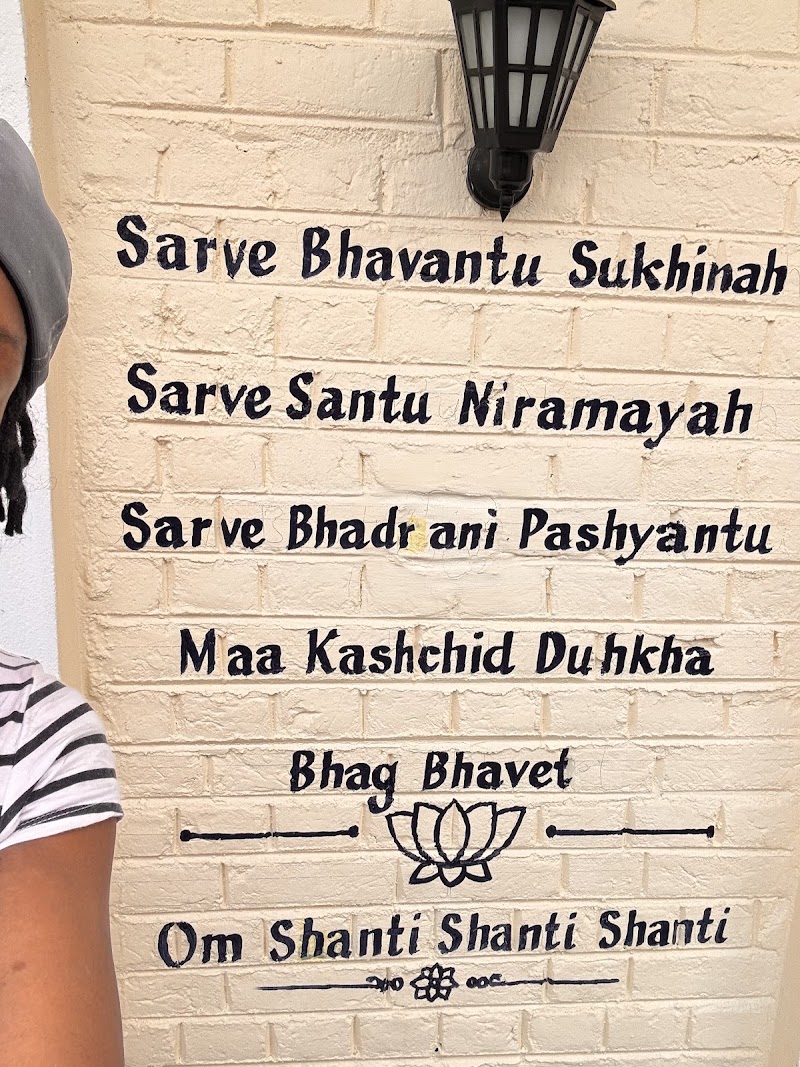 Sarve Bhavantu Sukhinah
Sarve Santu Niramayah
Sarve Bhadrani Pashyantu
Maa Kashchid Duhkha
Bhag Bhavet
Om Shanti Shanti Shanti